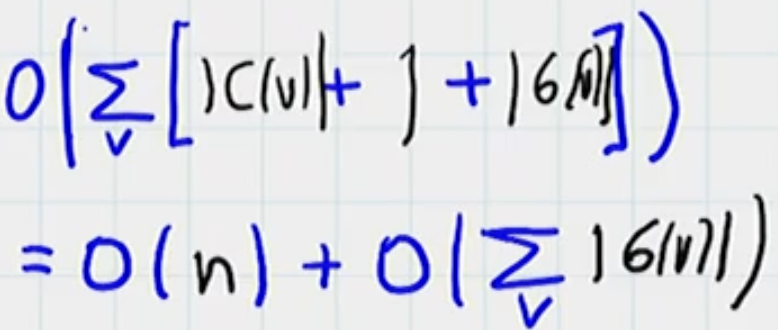 O(∑_v [|C(v)| + 1 + |G(v)|])
= O(n) + O(∑_v |G(v)|)